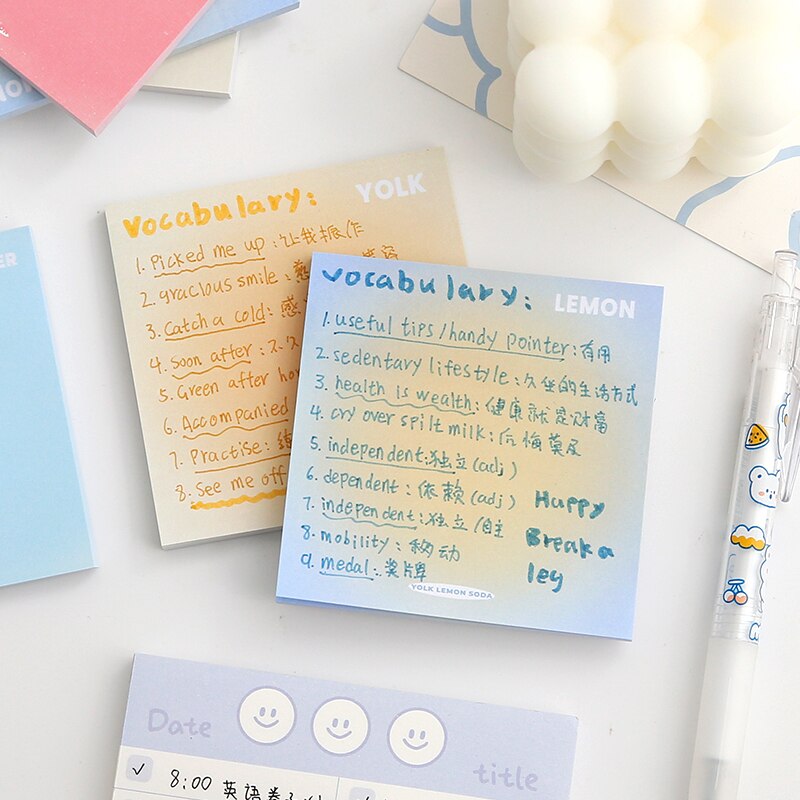 YOLK
vocabulary:
1. Picked me up: 让我振作
2. gracious smile:
3. Catch a cold: 感
4. Soon after: 不久
5. Green after
6. Accompanied
7. Practise:
8. See me off
LEMON
vocabulary:
1. useful tips/handy pointer: 有用
2. sedentary lifestyle: 久坐的生活方式
3. health is wealth: 健康就是财富
4. cry over spilt milk: 后悔莫及
5. independent: 独立 (adj)
6. dependent: 依赖 (adj)
7. independent: 独立/自主
8. mobility: 移动
9. medal: 奖牌
Happy
Break a
leg
YOLK LEMON SODA
Date
title
8:00 英语卷